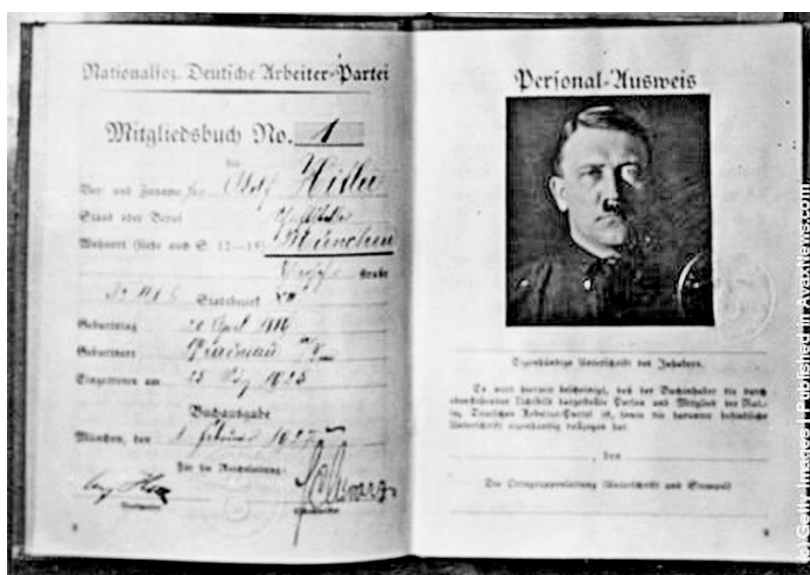 Nationalsoz. Deutsche Arbeiter-Partei
Mitgliedsbuch No. 1
für
Vor- und Zuname Adolf Hitler
Stand oder Beruf
Wohnort (siehe auch S. 12—15) München
straße
Stadtbezirk
Geburtstag 20 April
Geburtsort Braunau
Eingetreten am
Buchausgabe
München, den 1 Februar 1927
Für die Reichsleitung:
Schwarz
Personal-Ausweis
Eigenhändige Unterschrift des Inhabers.
Es wird hiermit bescheinigt, daß der Buchinhaber die durch
obenstehendes Lichtbild dargestellte Person und Mitglied der Nat.-
soz. Deutschen Arbeiter-Partei ist, sowie die darunter befindliche
Unterschrift eigenhändig vollzogen hat.
, den
Die Ortsgruppenleitung (Unterschrift und Stempel)
(c) Getty Images | Published in AyazNews.com